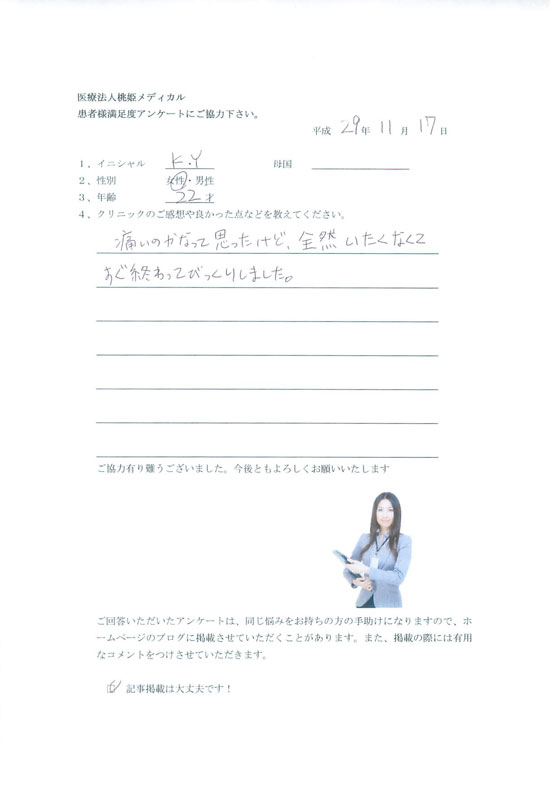 医療法人桃姫メディカル
患者様満足度アンケートにご協力下さい。
平成 29年 11月 17日
1、イニシャル K.Y 母国
2、性別 女性・男性
3、年齢 22才
4、クリニックのご感想や良かった点などを教えてください。
痛いのかなって思ったけど、全然いたくなくて
すぐ終わってびっくりしました。
ご協力有り難うございました。今後ともよろしくお願いいたします
ご回答いただいたアンケートは、同じ悩みをお持ちの方の手助けになりますので、ホ
ームページのブログに掲載させていただくことがあります。また、掲載の際には有用
なコメントをつけさせていただきます。
☑ 記事掲載は大丈夫です！